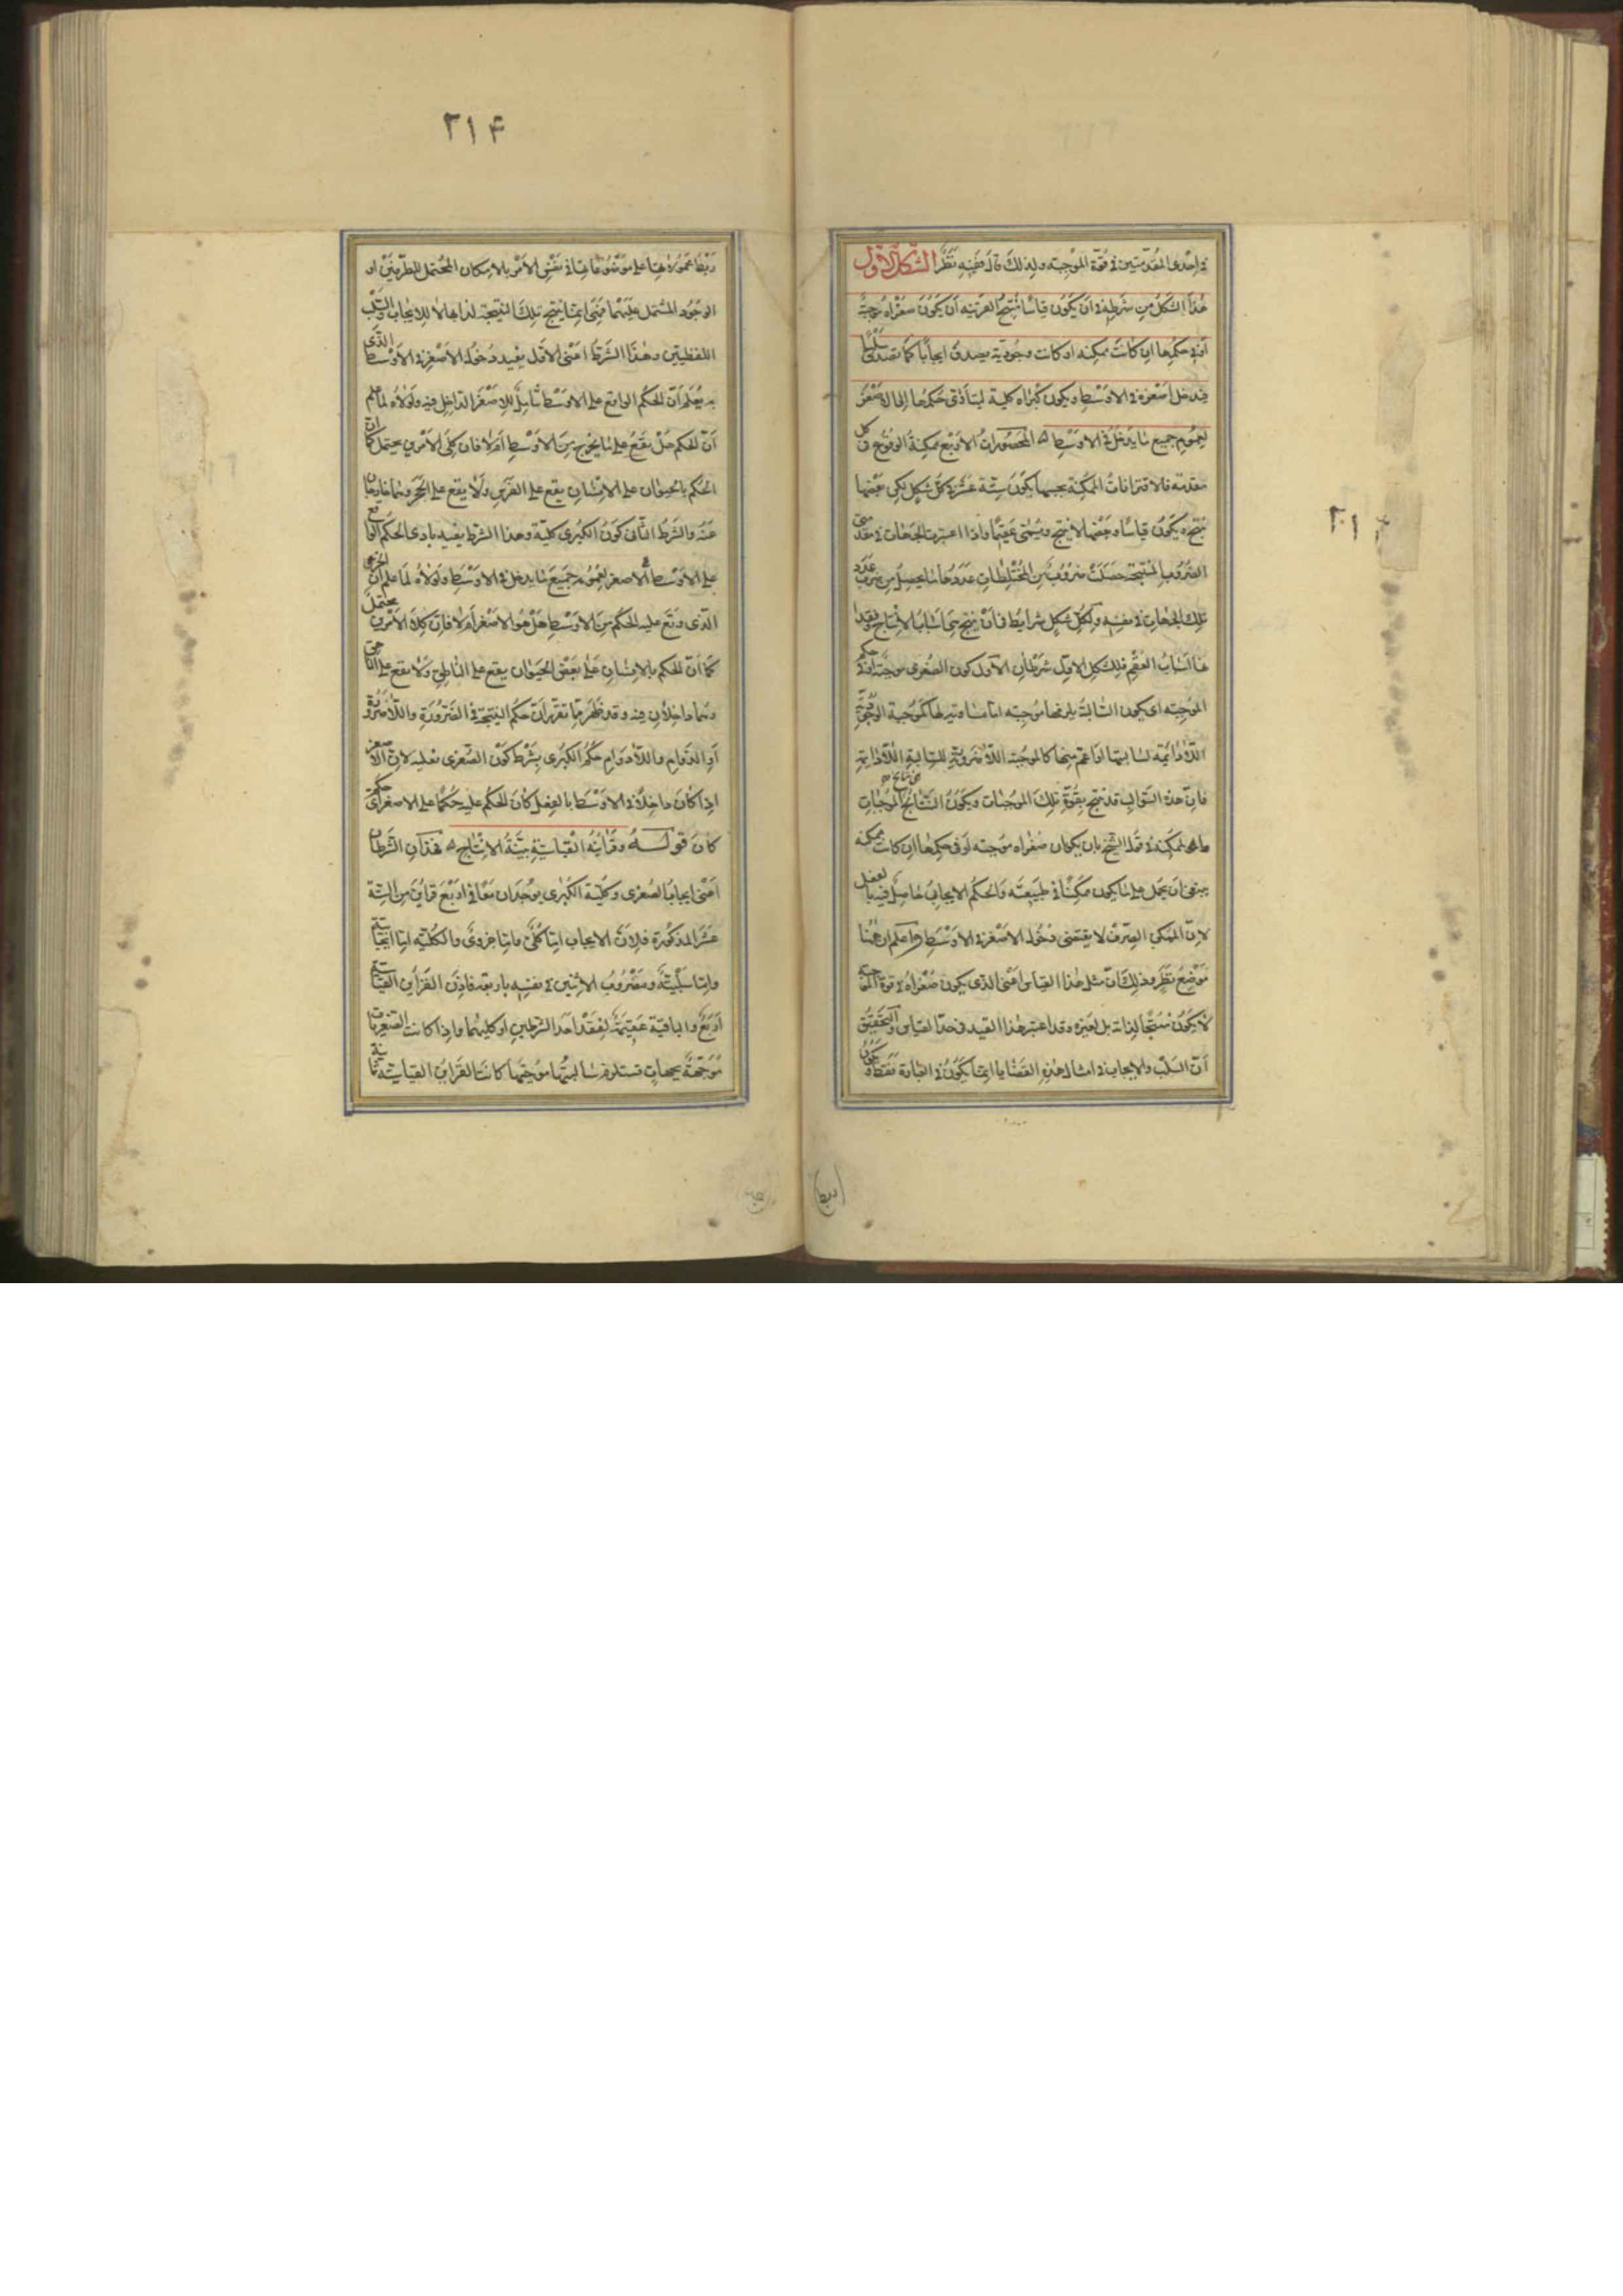 فى احدى المقدمتين فى قوة الموجبة ولذلك قال ففيه نظر الشكل الاول
هذا الشكل من شرطه فى ان يكون قياسا ينتج القرينة ان يكون صغراه موجبة
او فى حكمها ان كانت ممكنة او كانت وجودية يصدق ايجابا كما تصدق سلبا
فيدخل اصغره فى الاوسط ويكون كبراه كلية ليتأدى حكمها الى الاصغر
لعموم جميع ما يدخل فى الاوسط المحصورات الاربع ممكنة الوقوع فى كل
مقدمة فالاقترانات الممكنة بحسبها يكون ستة عشر فى كل شكل لكن بعضها
ينتج ويكون قياسا وبعضها لا ينتج ويسمى عقيما واذا اعتبرت الجهات فى مقدمتى
الضروب المنتجة حصلت ضروب من المختلطات عددها ما يحصل من ضرب عدد
تلك الجهات فى نفسه ولكل شكل شرايط فى ان ينتج هى اسباب الانتاج وفقدا
نها اسباب العقم فللشكل الاول شرطان الاول كون الصغرى موجبة او فى حكم
الموجبة اى يكون السالبة يلزمها موجبة اما مساوية لها كموجبة الوجودية
اللادائمة لسالبتها او اعم منها كالموجبة اللاضرورية للسالبة اللادائمة
فان هذه السوالب قد ينتج بقوة تلك الموجبات ويكون النتايج الموجبات
ممكنة فقول الشيخ بان يكون صغراه موجبة او فى حكمها ان كانت ممكنة
ينبغى ان يحمل على ما يكون ممكنا فى طبيعته والحكم الايجابى حاصل فيه بالفعل
لان الممكن الصرف لا يقتضى دخول الاصغر فى الاوسط واعلم ان ههنا
موضع نظر وذلك ان مثل هذا القياس اعنى الذى يكون صغراه فى قوة الموجبة
لا يكون منتجا لذاته بل لغيره وقد اعتبر هذا القيد فى حد القياس والتحقيق
ان السلب والايجاب فى امثال هذه القضايا انما يكون فى العبارة فقط ويكون
٢١۴
ربط محمولاتها على موضوعاتها فى نفس الامر بالامكان المحتمل للطرفين او
الوجود المشتمل عليهما فهى انما ينتج تلك النتيجة لذاتها لا للايجاب والسلب
اللفظيين وهذا الشرط اعنى الاول يفيد دخول الاصغر فى الاوسط الذى
به يعلم ان الحكم الواقع على الاوسط شامل للاصغر الداخل فيه ولولاه لما علم
ان الحكم هل يقع على ما يخرج من الاوسط ام لا فان كلى الامرين يحتمل كما ان
الحكم بالحيوان على الانسان يقع على الفرس ولا يقع على الحجر وهما خارجان
عنه والشرط الثانى كون الكبرى كلية وهذا الشرط يفيد تأدى الحكم الواقع
على الاوسط الى الاصغر لعمومه جميع ما يدخل فى الاوسط ولولاه لما علم ان الجزء
الذى وقع عليه الحكم من الاوسط هل هو الاصغر ام لا فان كلا الامرين يحتمل
كما ان الحكم بالانسان على بعض الحيوان يقع على الناطق ولا يقع على الناهق
وهما داخلان فيه وقد ظهر مما تقرر ان حكم النتيجة فى الضرورة واللاضرورة
او الدوام واللادوام حكم الكبرى بشرط كون الصغرى فعلية لان الاصغر
اذا كان داخلا فى الاوسط بالفعل كان الحكم عليه حكما على الاصغر اى حكم
كان قوله وقراينه القياسية بينة الانتاج فهذان الشرطان
اعنى ايجاب الصغرى وكلية الكبرى يوجدان معا فى اربع قراين من الستة
عشر المذكورة فلان الايجاب اما كلى واما جزوى والكلية اما ايجابية
واما سلبية ومضروب الاثنين فى نفسه اربعة فاذن القراين القياسية
اربع والباقية عقيمة لفقد احد الشرطين او كليهما واذا كانت الصغريات
موجهة بجهات تستلزم سالبتها موجبتها كانت القراين القياسية ثمانية